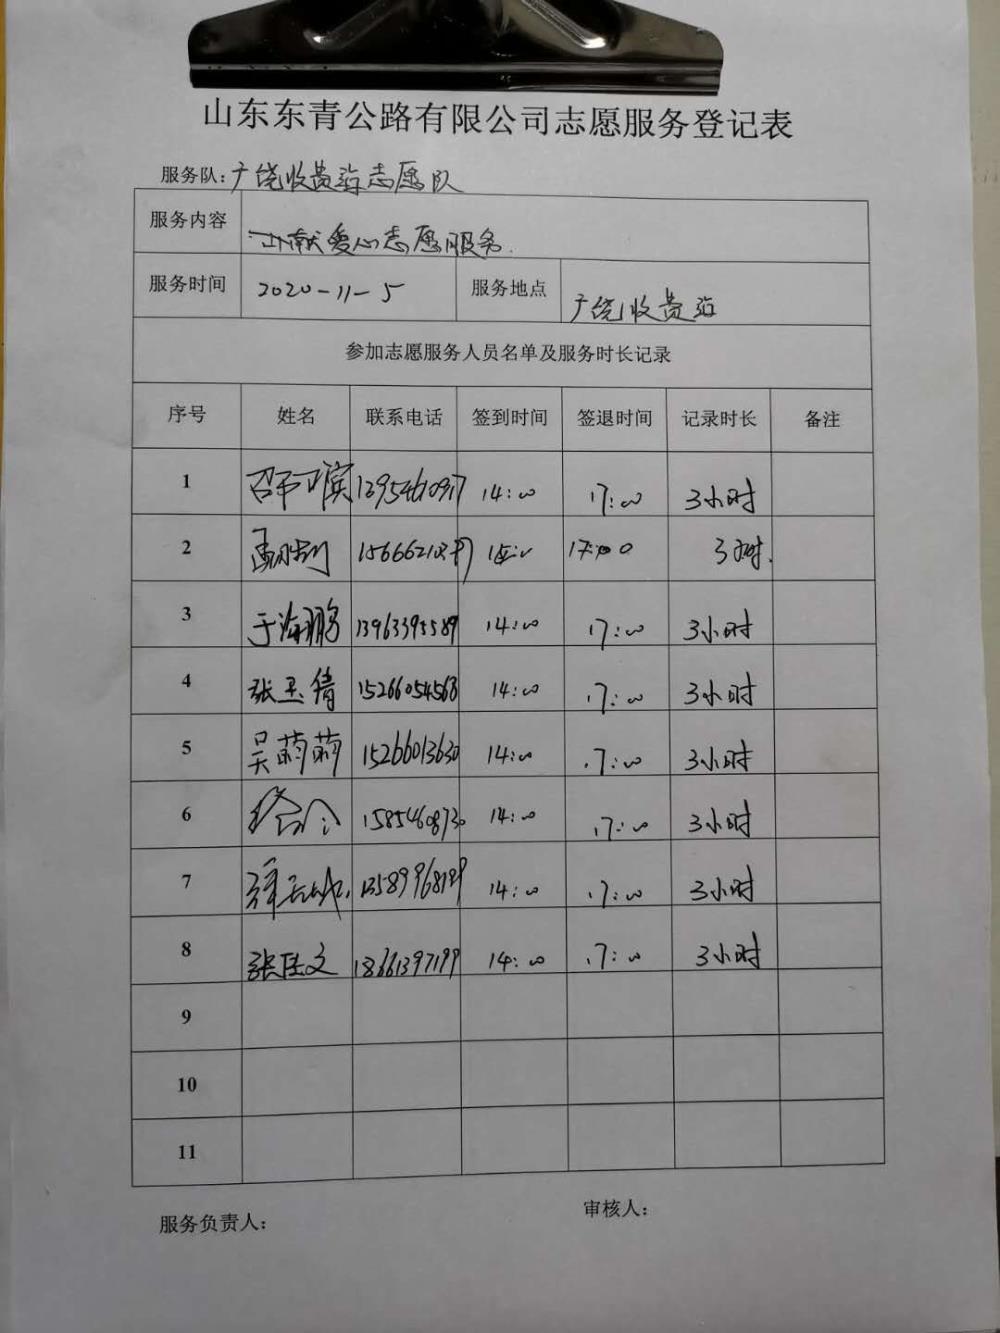 山东东青公路有限公司志愿服务登记表
服务队: 广饶收费站志愿队
服务内容 献爱心志愿服务.
服务时间 2020-11-5 服务地点 广饶收费站
参加志愿服务人员名单及服务时长记录
序号 姓名 联系电话 签到时间 签退时间 记录时长 备注
1 14:00 17:00 3小时
2 17:00 3小时.
3 于海鹏 13963395589 14:00 17:00 3小时
4 张玉倩 15266054568 14:00 17:00 3小时
5 吴萌萌 15266013630 14:00 17:00 3小时
6 15854608730 14:00 17:00 3小时
7 14:00 17:00 3小时
8 张臣文 18661397199 14:00 17:00 3小时
9
10
11
服务负责人: 审核人: